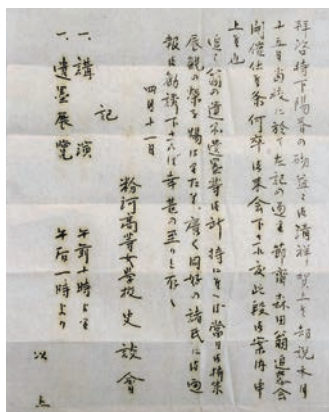 拝啓時下陽春の砌益々御清祥賀上候却説本月
十五日当校に於て左記の通り節斎森田翁追慕会
開催仕候条何卒御来会下され度此段御案内申
上候也
追て翁の遺品遺墨等
展観の栄を賜はり 広く同好の諸氏には御
報御勧誘下されば幸甚の至りに存候
四月十一日
粉河高等女学校史談会
記
一、講演 午前十時より
一、遺墨展覧 午后一時より
以上